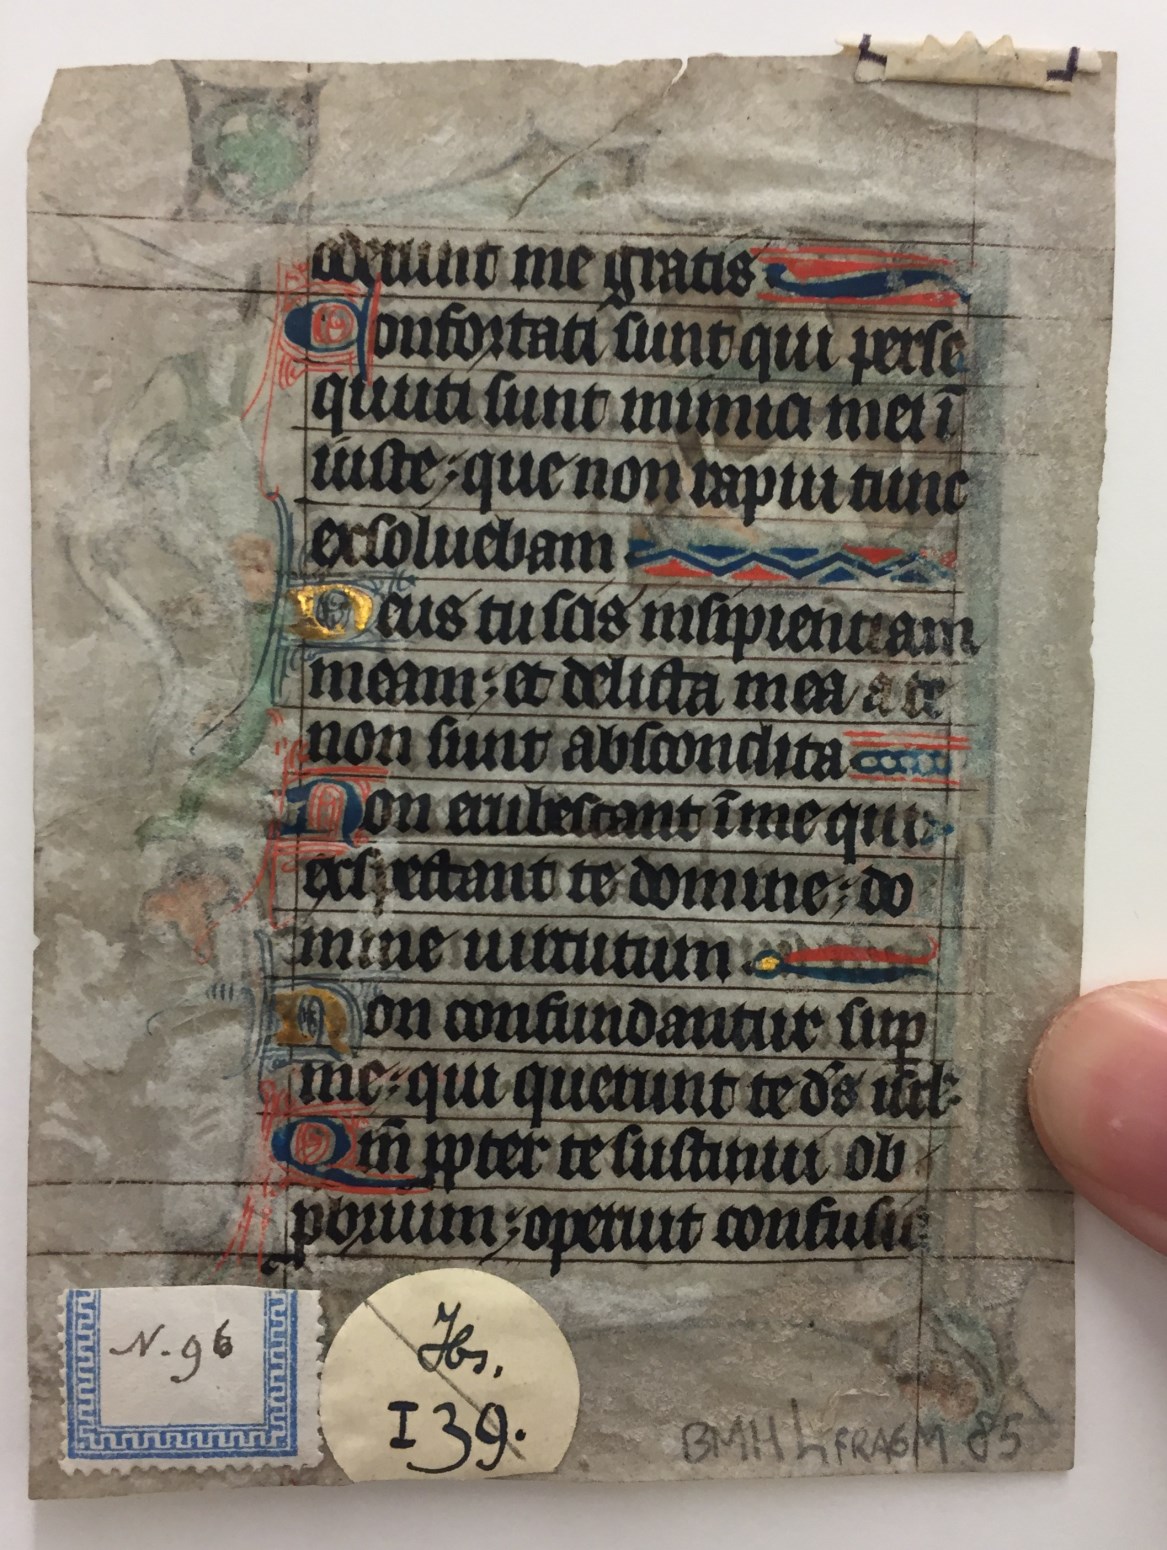 oderunt me gratis
Confortati sunt qui perse
quuti sunt inimici mei ī
iuste: que non rapui tunc
exsoluebam
Deus tu scis insipientiam
meam: et delicta mea a te
non sunt abscondita
Non erubescant ī me qui
exspectant te domine: do
mine uirtutum
Non confundantur sup
me: qui querunt te ds isrl:
Qm̄ ꝓpter te sustinui ob
pbrium: operuit confusio
N. 96
Hs.
I 39.
BMH h FRAGM 85